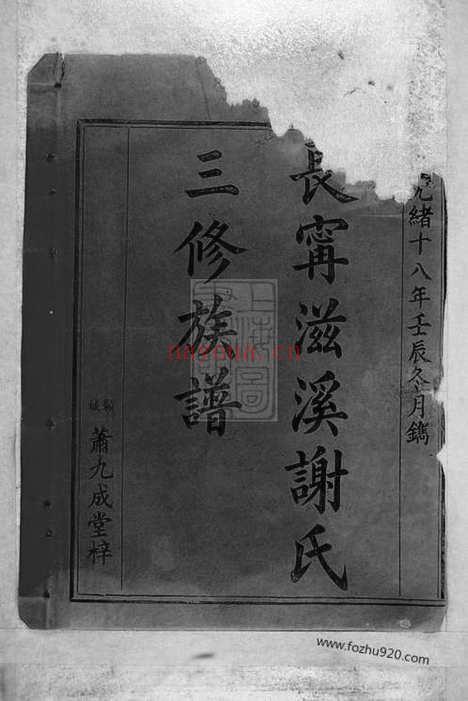 光緒十八年壬辰冬月鐫
長甯滋溪謝氏
三修族譜
蕭九成堂梓
nayona.cn
www.fozhu920.com